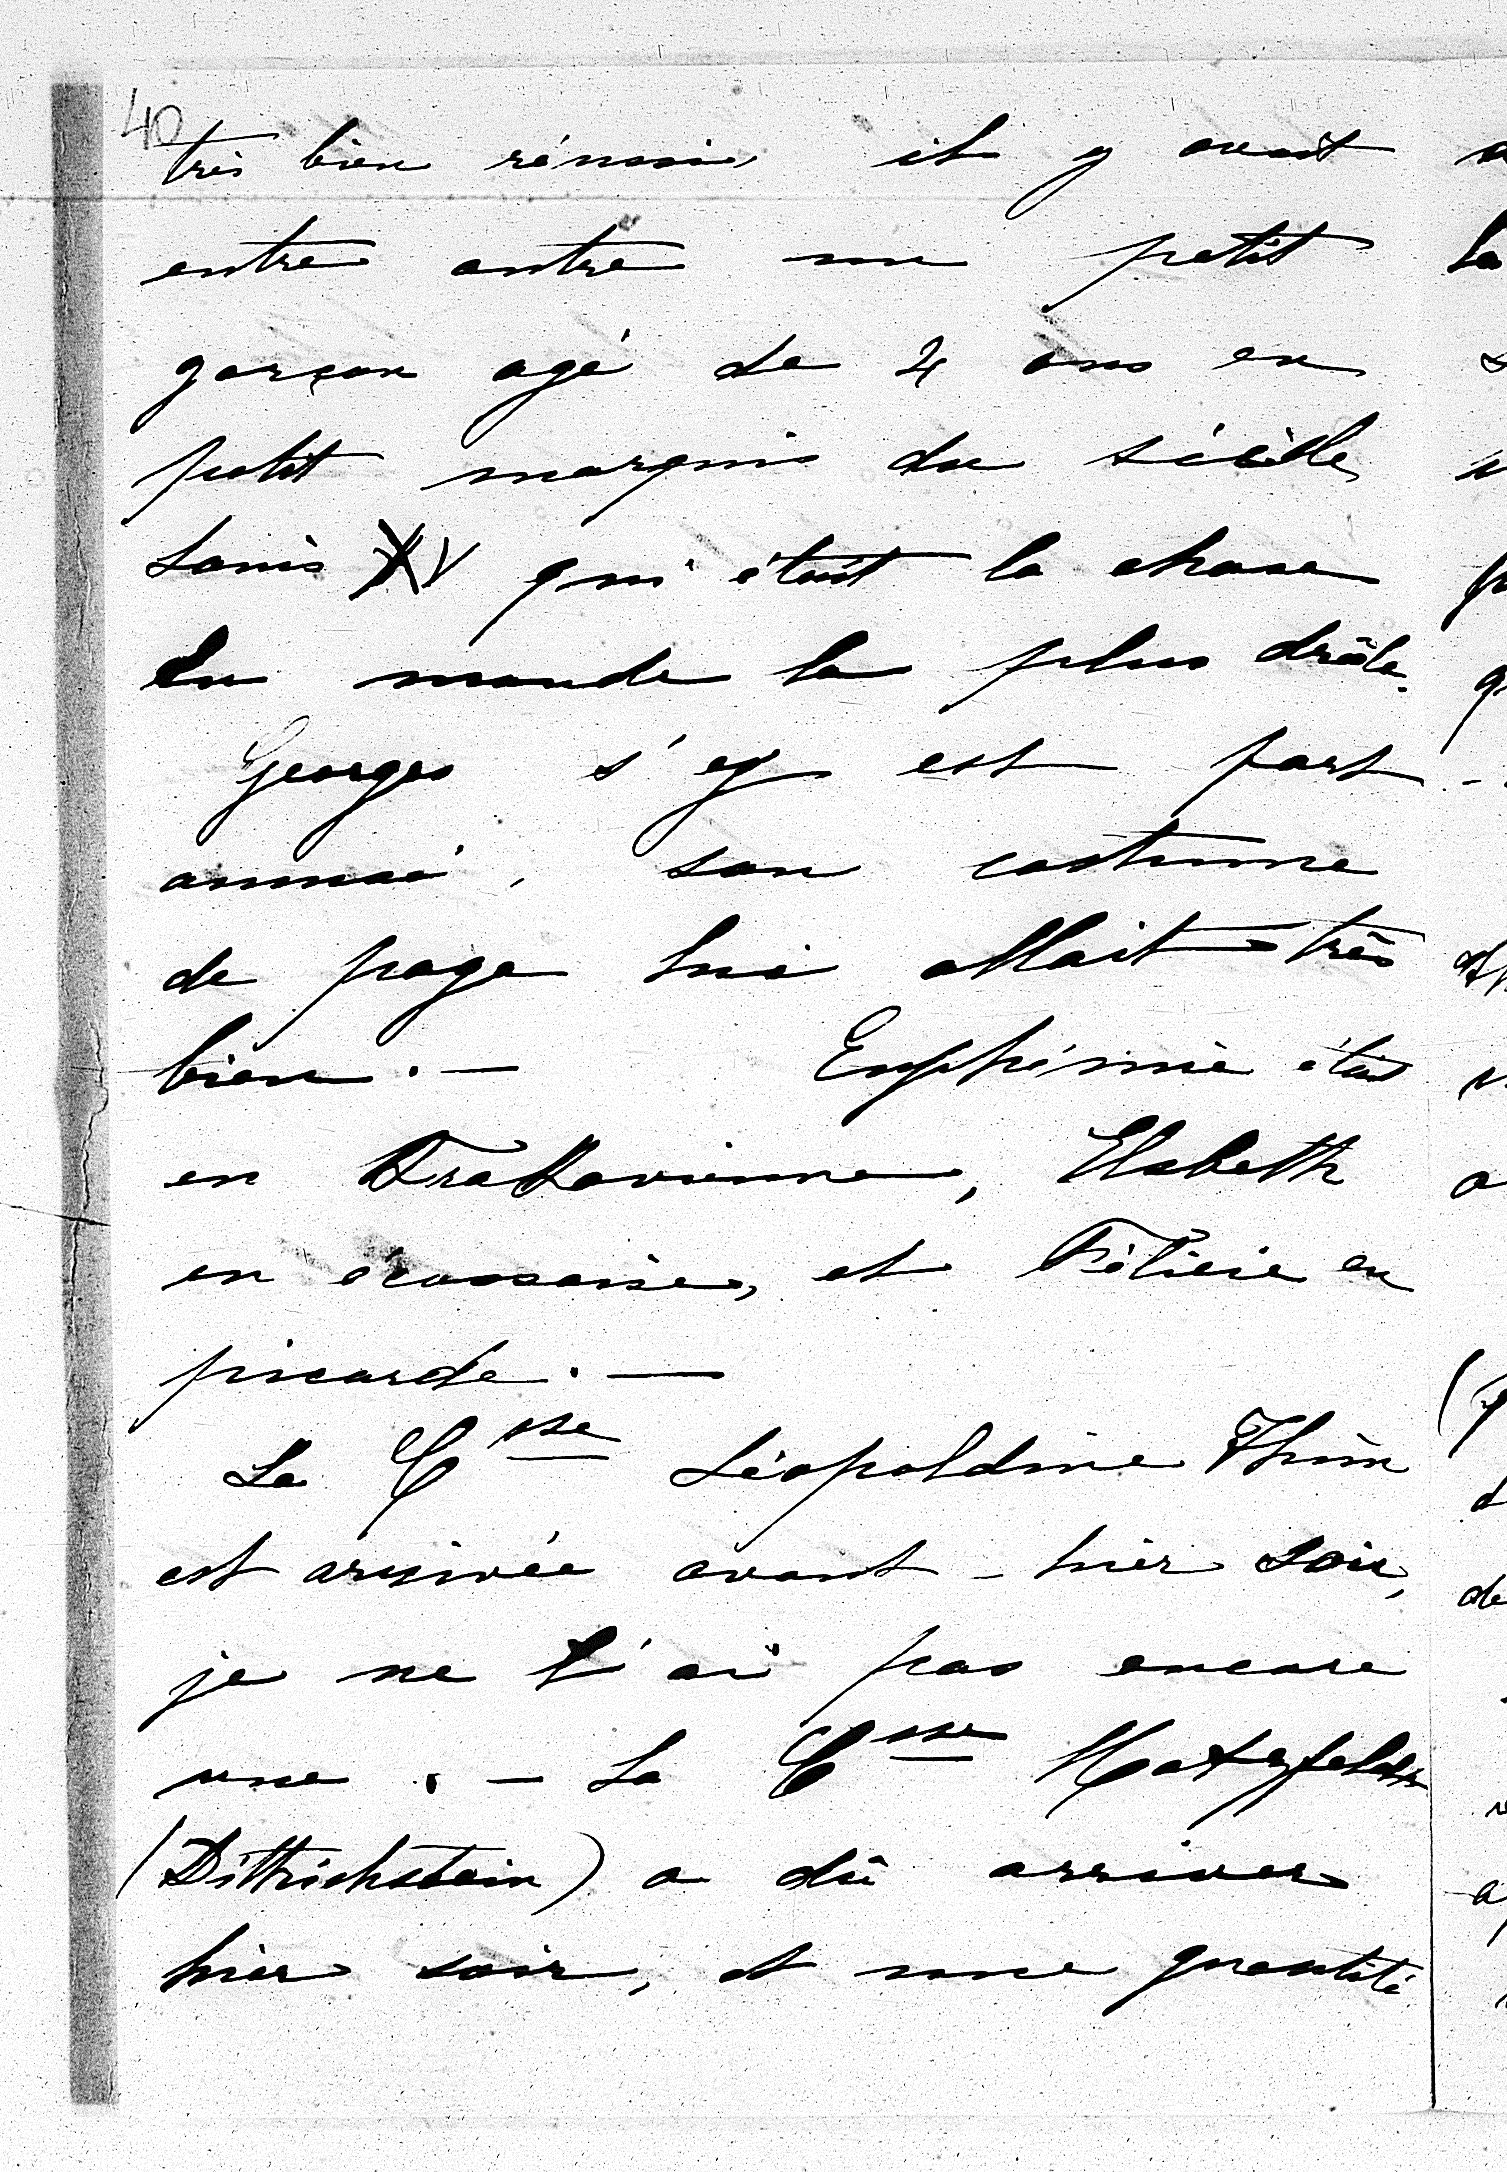 40
très bien réussi, il y avait
entre autre un petit
garçon agé de 4 ans en
petit marquis du siècle
Louis XV qui était la chose
du monde la plus drôle.
Georges s'est fort
amusé, son costume
de page lui allait très
bien. — Euphémie était
en Krakovienne, Elsbeth
en écossaise, et Félicie en
picarde. —
La Csse Léopoldine Thun
est arrivée avant-hier soir,
je ne l'ai pas encore
vue. — La Csse Hatzfeldt
(Dittrichstein) a dû arriver
hier soir, et une quantité